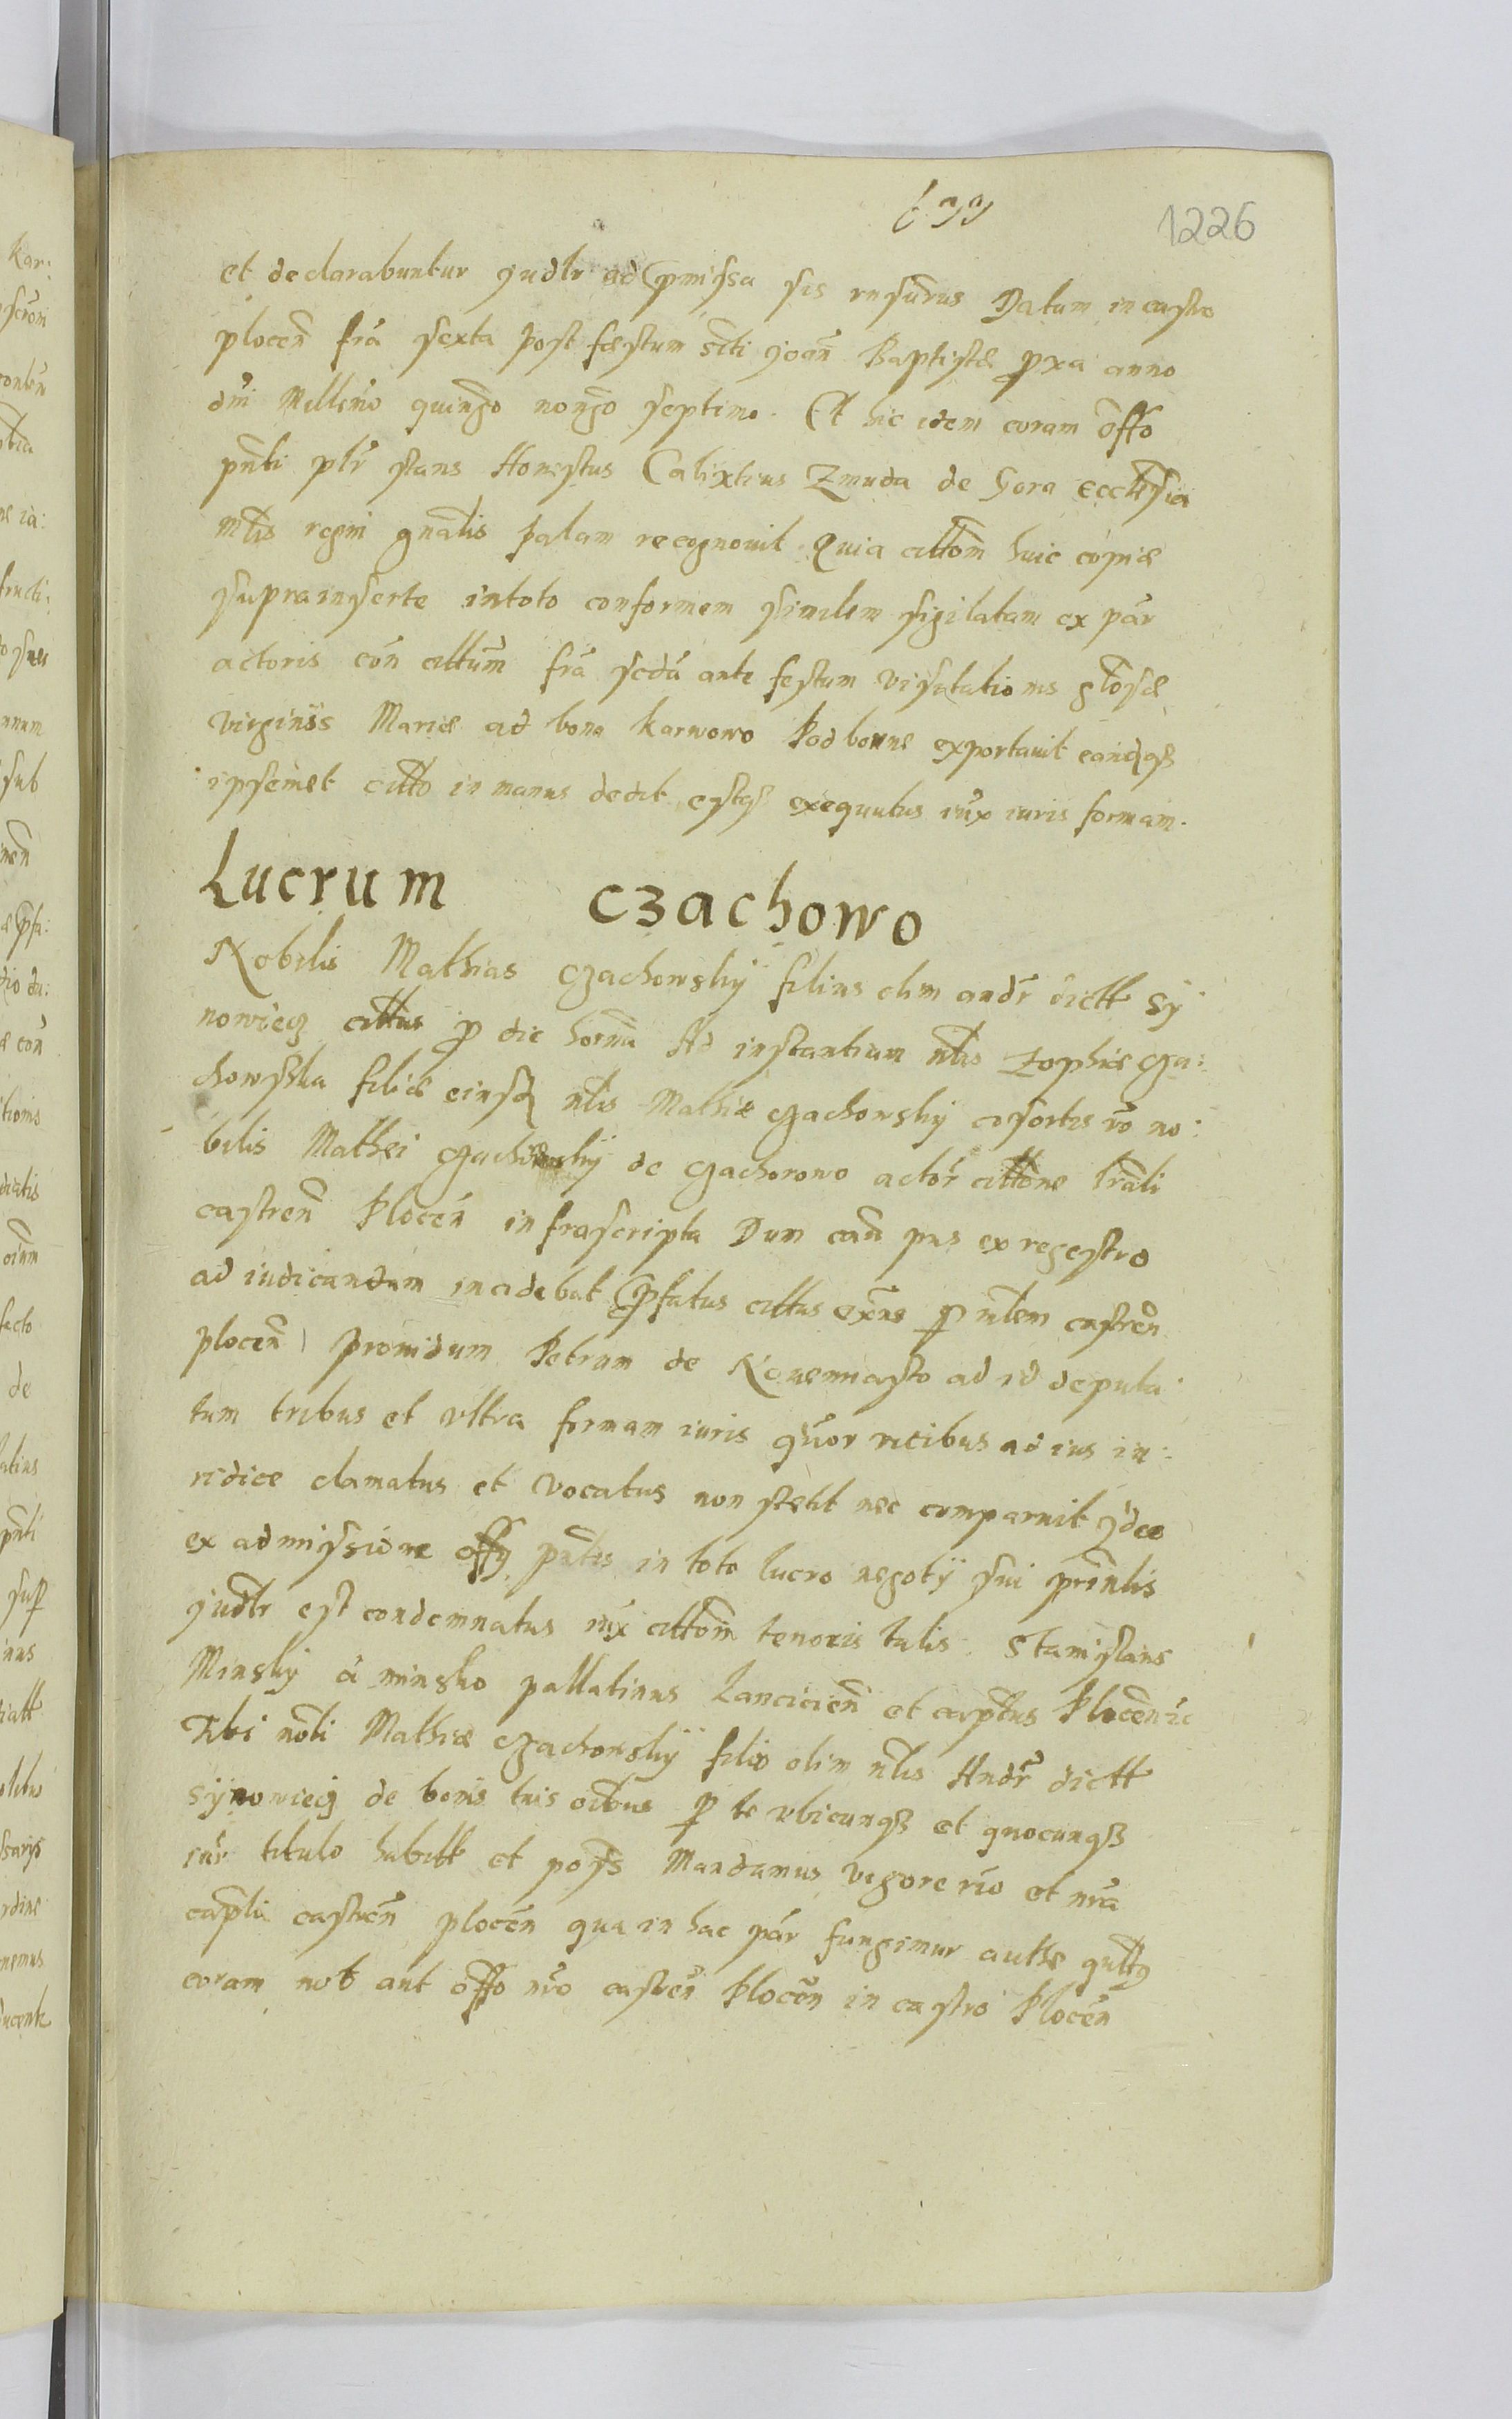 699
1226
et declarabuntur judlr ad pmissa sis rnsurus Datum in castro
plocen fra sexta post fæstum scti joan Baptistæ pxa anno
dni Millemo quingo nongo septimo. Et hic idem coram offo
pnti plr stans Honestus Calixtus Zmuda de Gora ecclesia
mlis regni gnalis palam recognovit Quia cittom huic copiæ
suprainserte intoto conformem similem sigilatam ex par
actoris con cittum fra scda ante festum visitationis glosæ
virginis Mariæ ad bona Karwowo Podborne exportavit eandqz
ipsemet citto in manus dedit estqz exequutus iux iuris formam.
Lucrum czachowo
Nobilis Mathias czachowskÿ filius olim andr dictt sÿ
nowiecz cittus p die hornu Ad instantiam nlis Zophiæ cza:
chowska filiæ eiusd nlis Mathiæ czachowskÿ cosortis vo no:
bilis Mathei czachowskÿ de czachorowo actor cittone lrali
castren Plocen infrascripta Dum can pns ex regestro
ad iudicandum incidebat pfatus cittus exns p mlem castren
plocen providum Petrum de Novemiasto ad id deputa
tum tribus et ultra formam iuris quor vicibus ad ius iu:
ridice clamatus et vocatus non stetit nec comparuit jdeo
ex admissione offÿ pntis in toto lucro negotÿ sui prinlis
judlr est condemnatus iux cittom tenoris talis. Stanislaus
Minskÿ a minsko pallatinus Lancicien et captus Plocen ic
Tibi nbli Mathiæ czachowskÿ filio olim nlis Andr dictt
sÿnowiecz de bonis tuis oibus p te ubicunqz et quocunqz
iur titulo habitt et poss Mandamus vigore rio et nra
capli castren plocen qua in hac par fungimur autte qultz
coram nob aut offo nro castren Plocen in castro Plocen